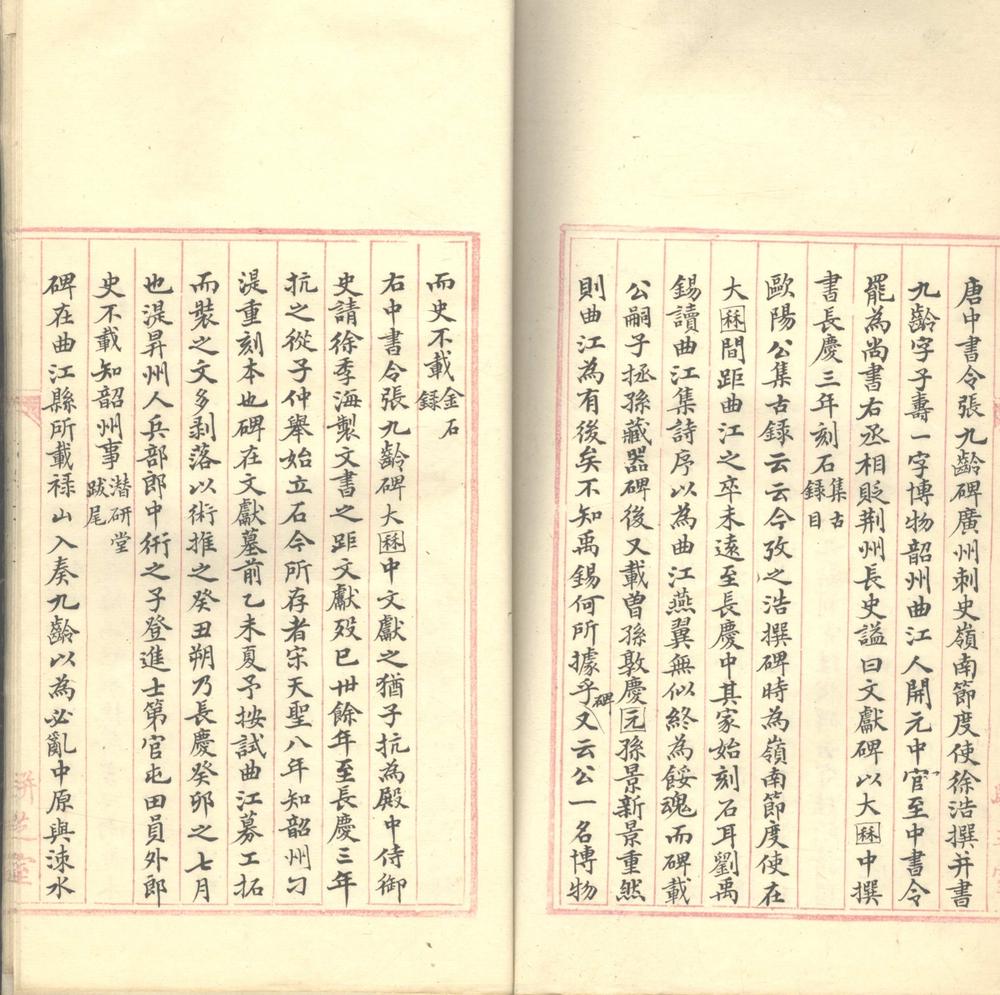 唐中書令張九齡碑廣州刺史嶺南節度使徐浩撰并書
九齡字子壽一字博物韶州曲江人開元中官至中書令
罷為尚書右丞相貶荆州長史謚曰文獻碑以大秝中撰
書長慶三年刻石集古録目
歐陽公集古録云云今攷之浩撰碑時為嶺南節度使在
大秝間距曲江之卒未遠至長慶中其家始刻石耳劉禹
錫讀曲江集詩序以為曲江燕翼無似終為餒魂而碑載
公嗣子拯孫藏器碑後又載曾孫敦慶元孫景新景重然
則曲江為有後矣不知禹錫何所據乎碑又云公一名博物
而史不載金石録
右中書令張九齡碑大秝中文獻之猶子抗為殿中侍御
史請徐季海製文書之距文獻殁已卅餘年至長慶三年
抗之從子仲舉始立石今所存者宋天聖八年知韶州刁
湜重刻本也碑在文獻墓前乙未夏予按試曲江募工拓
而裝之文多剥落以術推之癸丑朔乃長慶癸卯之七月
也湜昇州人兵部郎中衎之子登進士第官屯田員外郎
史不載知韶州事潛研堂跋尾
碑在曲江縣所載禄山入奏九齡以為必亂中原與涑水